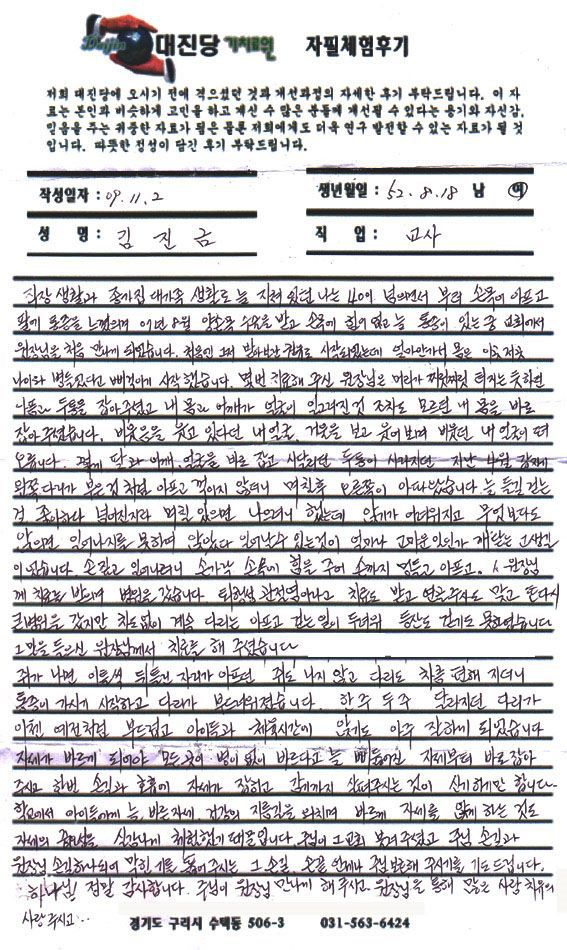 Daejin 대진당 기치료원 자필체험후기
저희 대진당에 오시기 전에 격으셨던 것과 개선과정의 자세한 후기 부탁드립니다. 이 자
료는 본인과 비슷하게 고민을 하고 계신 수 많은 분들께 개선될 수 있다는 용기와 자신감,
믿음을 주는 귀중한 자료가 됨은 물론 저희에게도 더욱 연구 발전할 수 있는 자료가 될 것
입니다. 따뜻한 정성이 담긴 후기 부탁드립니다.
작성일자 : 09. 11. 2
생년월일 : 52. 8. 18 남 여
성 명 : 김 진 금
직 업 : 교사
직장 생활과 종가집 대가족 생활로 늘 지쳐 있던 나는 40이 넘으면서 부터 손목이 아프고
팔에 통증을 느꼈으며 8월 양손목 수술을 받고 손목에 힘이 없고 늘 통증이 있는 중 교회에서
원장님을 처음 만나게 되었습니다. 시작되었는데 얼마안가서 몸은 이곳저곳
시작 했습니다. 몇번 치료해 주신 원장님은 머리가 찌릿찌릿 터지는 듯하던
두통을 잡아주셨고 내 몸과 어깨가 얼굴이 일그러진것 조차도 모르던 내 몸을 바로
잡아 주셨습니다. 비웃음을 웃고 있다던 내 얼굴, 거울을 보고 웃어보며 비웃던 내 얼굴이 떠
오릅니다. 어깨, 얼굴을 바로 잡고 시달리던 두통이 사라지던 지난 갑자기
왼쪽다리가 부은것 처럼 아프고 꺾이지 않더니 며칠후 오른쪽이 아파왔습니다. 늘 걷는
걸 좋아하다 넘어진자라 며칠 있으면 나으려니 했는데 앉기가 어려워지고 무엇보다도
앉으면 일어나지를 못하며 앉았다 일어날수 있는것이 얼마나 고마운일인가 깨닫는
이었습니다. 손짚고 일어나려니 손가락 손목에 힘을 주어 손까지 멍들고 아프고. 원장님
께 치료를 받으며 병원을 갔습니다. 퇴행성 관절염이라고 치료도 받고 연골주사도 맞고 또다시
큰병원을 갔지만 차도없이 계속 다리는 아프고 걷는일이 두려워 등산도 걷기도 못하였습니다
그 말을 들으신 원장님께서 치료를 해 주셨습니다
쥐가 나면 이틀씩 뒤틀린 자리가 아프던 쥐도 나지 않고 다리도 차츰 편해 지더니
통증이 가시기 시작하고 다리가 부드러워졌습니다. 한 주 두 주 달라지던 다리가
이젠 예전처럼 부드럽고 아이들과 체육시간에 앉기도 아주 잘하게 되었습니다
자세가 바르게 되어야 모든곳이 병이 없이 바르다고 늘 삐뚤어진 자세부터 바로잡아
주시고 한번 손길과 호흡에 자세가 잡히고 살펴주시는 것이 신기하기만 합니다.
학교에서 아이들에게 늘 바른자세, 건강의 지름길을 외치며 바르게 자세를 앉게 하는 것도
자세의 중요성을 실감나게 체험했기 때문입니다. 주님이 그 교회 보내주셨고 주님 손길과
원장님 손길하나되어 막힌 기를 풀어주시는 그 손길 손길 언제나 주님 보호해 주시기를 기도드립니다.
하나님 정말 감사합니다. 주님이 원장님 만나게 해 주시고. 원장님을 통해 많은 사람 치유의
사랑 주시고 ...
경기도 구리시 수택동 506-3 031-563-6424